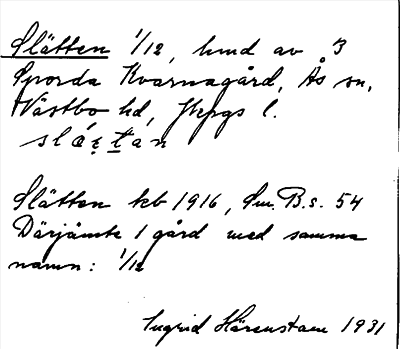 Slätten 1/12, hmd av 3
Sporda Kvarnagård, Ås sn,
Västbo hd, Jkpgs l.
slǽtan
Slätten kb 1916, Sm. B.s. 54
Därjämte 1 gård med samma
namn: 1/12
Ingrid Härenstam 1931